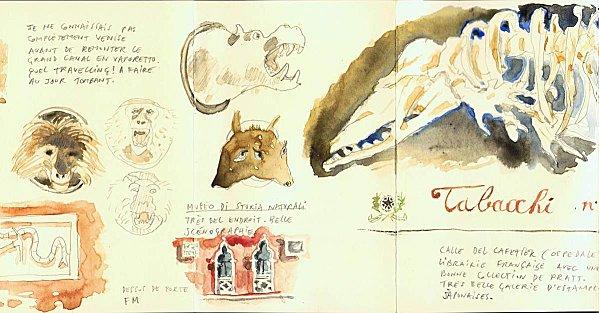 JE NE CONNAISSAIS PAS
COMPLÈTEMENT VENISE
AVANT DE REMONTER LE
GRAND CANAL EN VAPORETTO.
QUEL TRAVELLING! A FAIRE
AU JOUR TOMBANT.
MUSEO DI STORIA NATURALE
TRÈS BEL ENDROIT. BELLE
SCÉNOGRAPHIE
DESSUS DE PORTE
FM
Tabacchi . n°
CALLE DEL CAFETIER (OSPEDALE
LIBRAIRIE FRANÇAISE AVEC UNE
BONNE COLLECTION DE PRATT.
TRÈS BELLE GALERIE D'ESTAMPE
JAPONAISES.